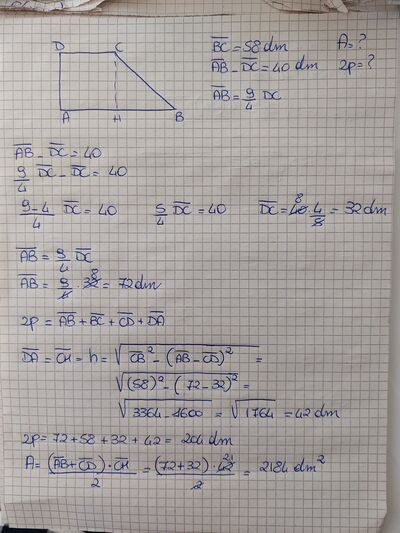 D C
A H B
B̅C̅ = 58 dm A = ?
A̅B̅ - D̅C̅ = 40 dm 2p = ?
A̅B̅ = 9/4 DC
A̅B̅ - D̅C̅ = 40
9/4 D̅C̅ - D̅C̅ = 40
9-4/4 D̅C̅ = 40 5/4 D̅C̅ = 40 D̅C̅ = 40 8 · 4/5 = 32 dm
A̅B̅ = 9/4 D̅C̅
A̅B̅ = 9/4 · 32 8 = 72 dm
2p = A̅B̅ + B̅C̅ + C̅D̅ + D̅A̅
D̅A̅ = C̅H̅ = h = √(C̅B̅² - (A̅B̅ - C̅D̅)²) =
√((58)² - (72-32)²) =
√(3364 - 1600) = √1764 = 42 dm
2p = 72 + 58 + 32 + 42 = 204 dm
A = (A̅B̅ + C̅D̅) · C̅H̅/2 = (72+32) · 42 21/2 = 2184 dm²